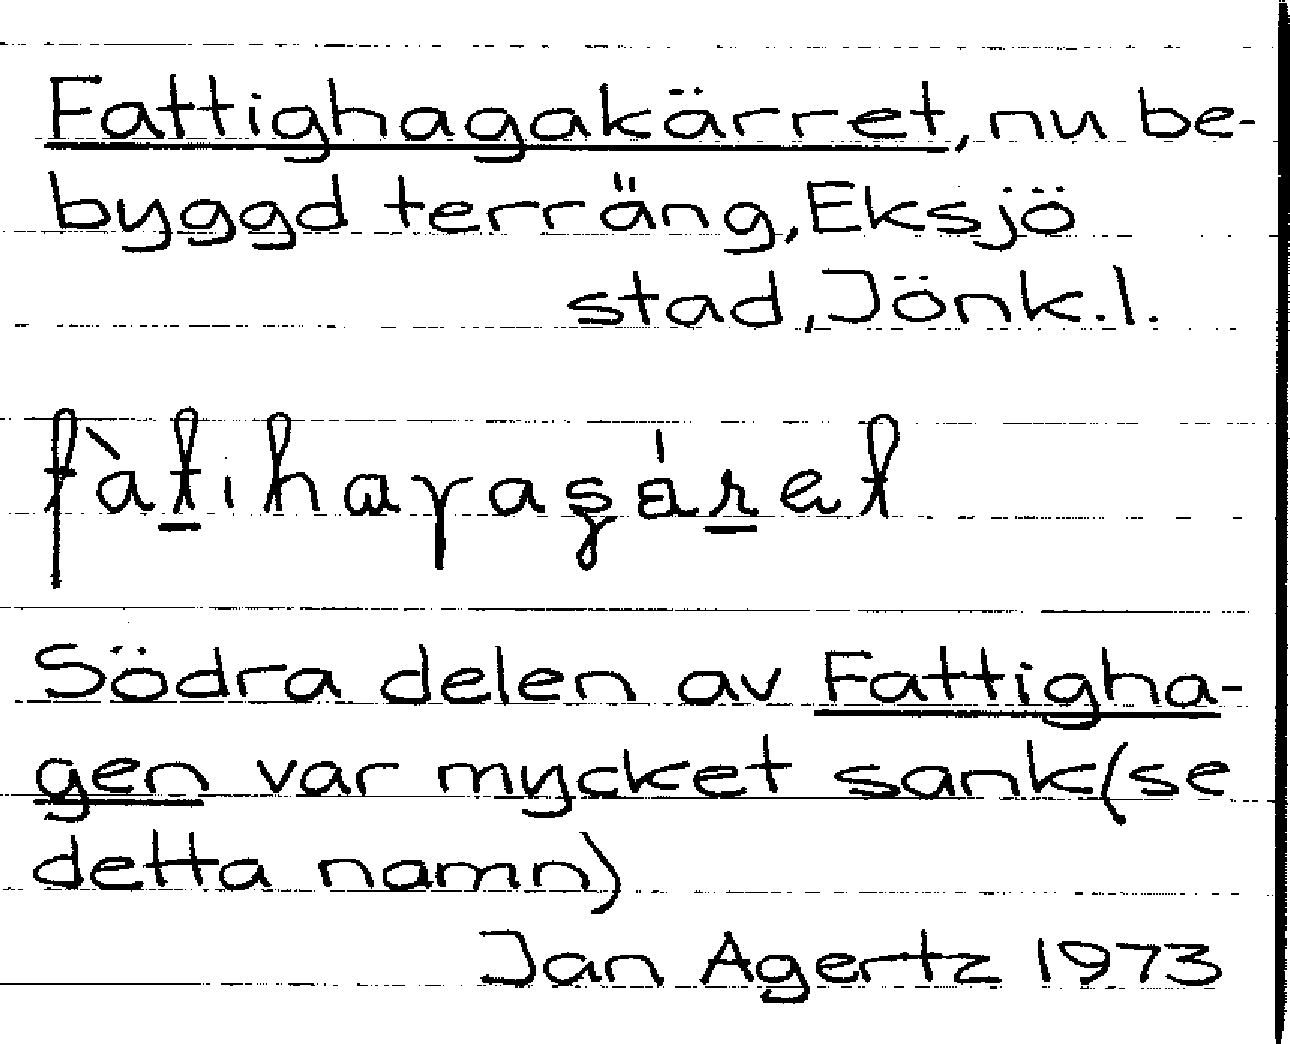 Fattighagakärret, nu be-
byggd terräng, Eksjö
stad, Jönk.l.
Södra delen av Fattigha-
gen var mycket sank (se
detta namn)
Jan Agertz 1973